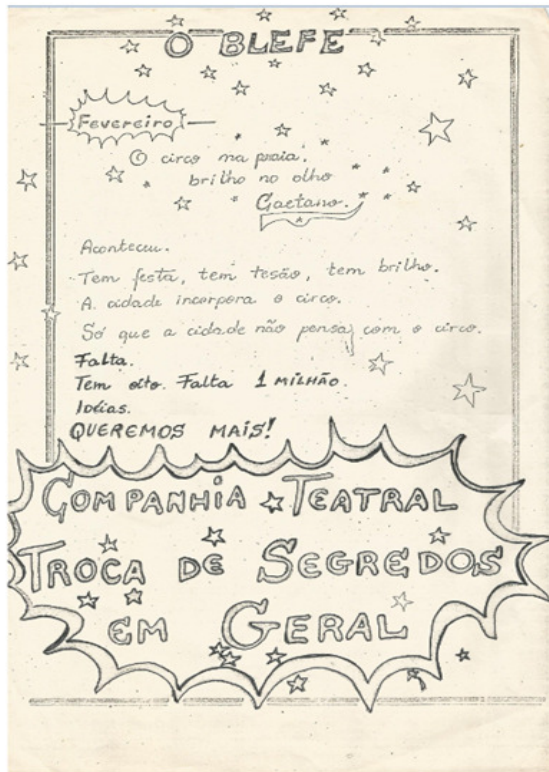 O BLEFE
Fevereiro
O circo na praia.
brilho no olho
Gaetano.
Aconteceu.
Tem festa, tem tesão, tem brilho.
A cidade incorpora o circo.
Só que a cidade não pensa com o circo.
Falta.
Tem oito. Falta 1 MILHÃO.
Idéias.
QUEREMOS MAIS!
COMPANHIA TEATRAL
TROCA DE SEGREDOS
EM GERAL